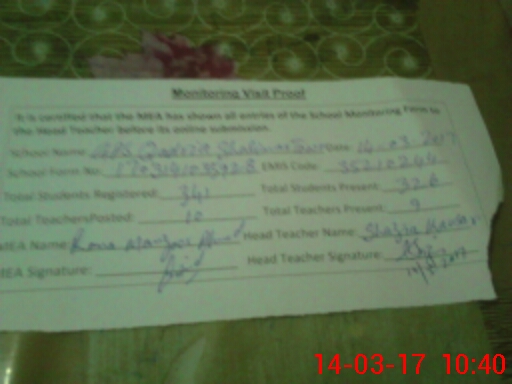 Monitoring Visit Proof
It is certified that the MEA has shown all entries of the School Monitoring Form to
the Head Teacher before its online submission.
School Name: GPS Date: 14-03-2017
School Form No: EMIS Code: 35210244
Total Students Registered: 341 Total Students Present:
Total TeachersPosted: 10 Total Teachers Present: 9
MEA Name: Head Teacher Name: Shazia
MEA Signature: Head Teacher Signature:
14-03-17 10:40